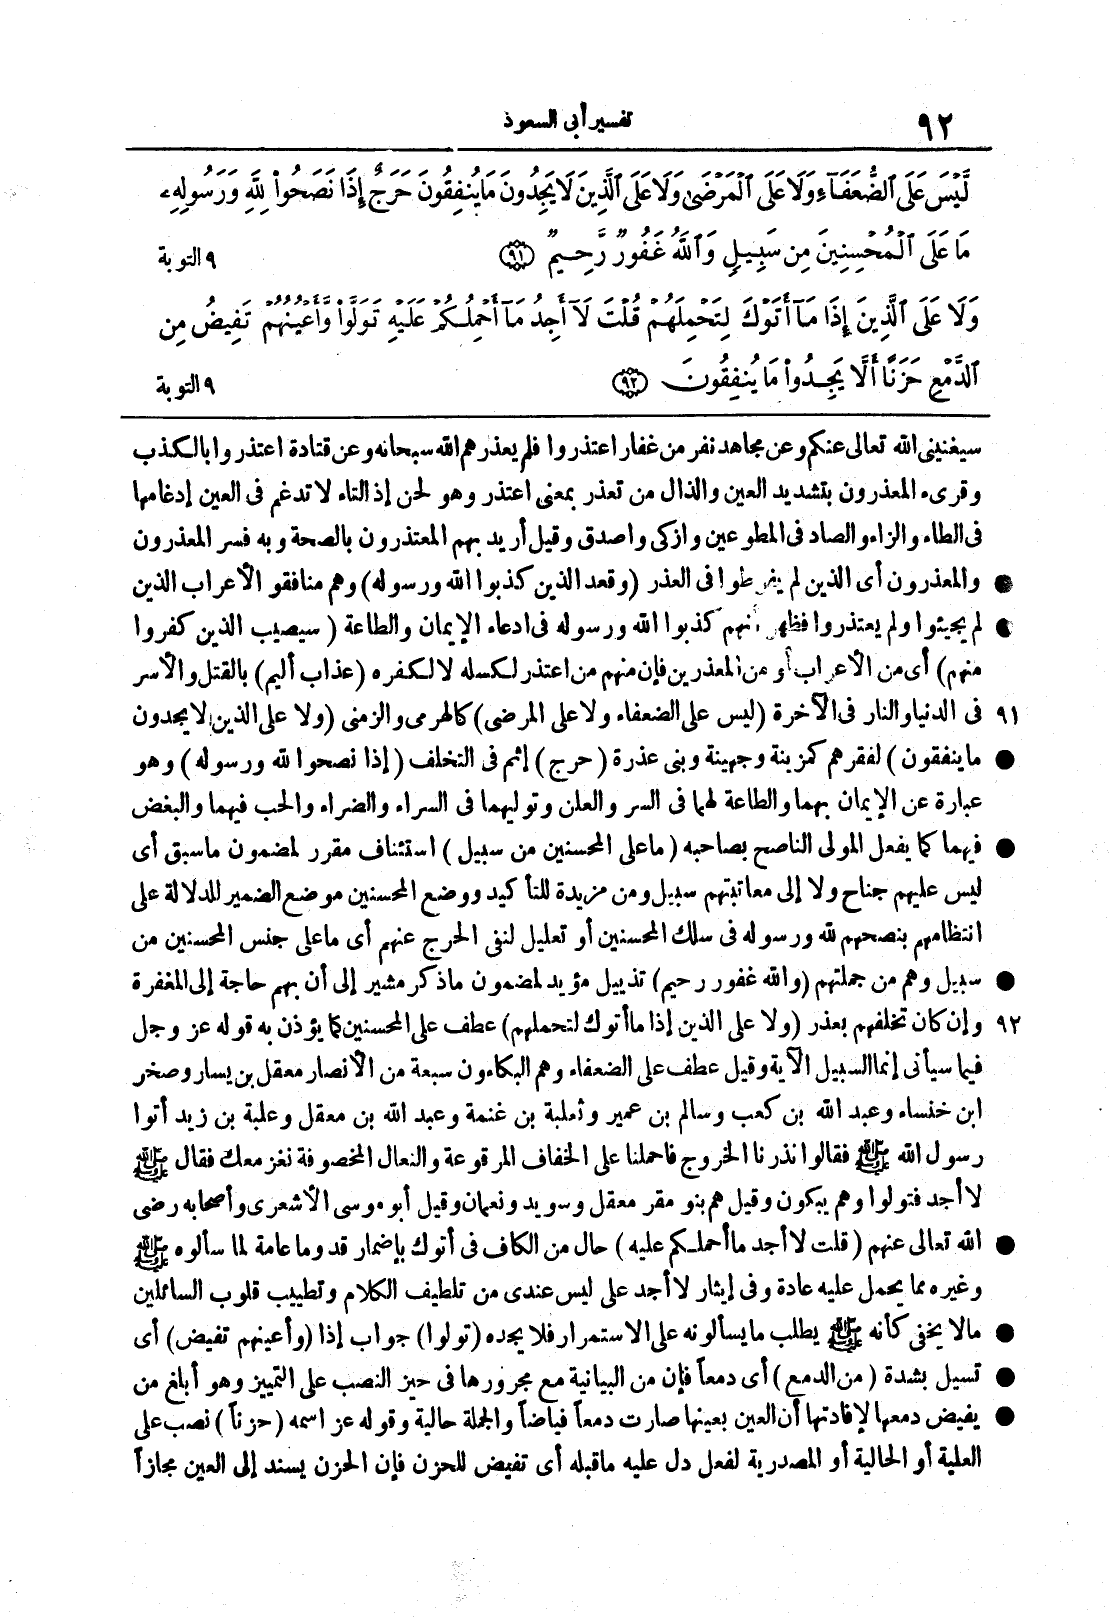 ٩٢
تفسير أبى السعود
لَّيْسَ عَلَى ٱلضُّعَفَآءِ وَلَا عَلَى ٱلْمَرْضَىٰ وَلَا عَلَى ٱلَّذِينَ لَا يَجِدُونَ مَا يُنفِقُونَ حَرَجٌ إِذَا نَصَحُوا۟ لِلَّهِ وَرَسُولِهِۦ
مَا عَلَى ٱلْمُحْسِنِينَ مِن سَبِيلٍ وَٱللَّهُ غَفُورٌ رَّحِيمٌ ﴿٩١﴾ ٩ التوبة
وَلَا عَلَى ٱلَّذِينَ إِذَا مَآ أَتَوْكَ لِتَحْمِلَهُمْ قُلْتَ لَآ أَجِدُ مَآ أَحْمِلُكُمْ عَلَيْهِ تَوَلَّوا۟ وَّأَعْيُنُهُمْ تَفِيضُ مِنَ
ٱلدَّمْعِ حَزَنًا أَلَّا يَجِدُوا۟ مَا يُنفِقُونَ ﴿٩٢﴾ ٩ التوبة
سيغنينى الله تعالى عنكم وعن مجاهد نفر من غفار اعتذروا فلم يعذرهم الله سبحانه وعن قتادة اعتذروا بالكذب
وقرىء المعذرون بتشديد العين والذال من تعذر بمعنى اعتذر وهو لحن إذ التاء لا تدغم فى العين إدغامها
فى الطاء والزاء والصاد فى المطوعين وازكى واصدق وقيل أريد بهم المعتذرون بالصحة وبه فسر المعذرون
● والمعذرون أى الذين لم يفرطوا فى العذر (وقعد الذين كذبوا الله ورسوله) وهم منافقو الأعراب الذين
● لم يجيئوا ولم يعتذروا فظهر أنهم كذبوا الله ورسوله فى ادعاء الإيمان والطاعة (سيصيب الذين كفروا
منهم) أى من الأعراب أو من المعذرين فإن منهم من اعتذر لكسله لا لكفره (عذاب أليم) بالقتل والأسر
٩١ فى الدنيا والنار فى الآخرة (ليس على الضعفاء ولا على المرضى) كالهرمى والزمنى (ولا على الذين لا يجدون
● ما ينفقون) لفقرهم كمزينة وجهينة وبنى عذرة (حرج) إثم فى التخلف (إذا نصحوا لله ورسوله) وهو
عبارة عن الإيمان بهما والطاعة لهما فى السر والعلن وتوليهما فى السراء والضراء والحب فيهما والبغض
● فيهما كما يفعل المولى الناصح بصاحبه (ما على المحسنين من سبيل) استئناف مقرر لمضمون ما سبق أى
ليس عليهم جناح ولا إلى معاتبتهم سبيل ومن مزيدة للتأكيد ووضع المحسنين موضع الضمير للدلالة على
انتظامهم بنصحهم لله ورسوله فى سلك المحسنين أو تعليل لنفى الحرج عنهم أى ما على جنس المحسنين من
● سبيل وهم من جملتهم (والله غفور رحيم) تذييل مؤيد لمضمون ما ذكر مشير إلى أن بهم حاجة إلى المغفرة
٩٢ وإن كان تخلفهم بعذر (ولا على الذين إذا ما أتوك لتحملهم) عطف على المحسنين كما يؤذن به قوله عز وجل
فيما سيأتى إنما السبيل الآية وقيل عطف على الضعفاء وهم البكاءون سبعة من الأنصار معقل بن يسار وصخر
ابن خنساء وعبد الله بن كعب وسالم بن عمير وثعلبة بن غنمة وعبد الله بن معقل وعلبة بن زيد أتوا
رسول الله ﷺ فقالوا نذرنا الخروج فاحملنا على الخفاف المرقوعة والنعال المخصوفة نغز معك فقال ﷺ
لا أجد فتولوا وهم يبكون وقيل هم بنو مقرن معقل وسويد ونعمان وقيل أبو موسى الأشعرى وأصحابه رضى
● الله تعالى عنهم (قلت لا أجد ما أحملكم عليه) حال من الكاف فى أتوك بإضمار قد وما عامة لما سألوه ﷺ
وغيره مما يحمل عليه عادة وفى إيثار لا أجد على ليس عندى من تلطيف الكلام وتطييب قلوب السائلين
● مالا يخفى كأنه ﷺ يطلب ما يسألونه على الاستمرار فلا يجده (تولوا) جواب إذا (وأعينهم تفيض) أى
● تسيل بشدة (من الدمع) أى دمعاً فإن من البيانية مع مجرورها فى حيز النصب على التمييز وهو أبلغ من
● يفيض دمعها لإفادتها أن العين بعينها صارت دمعاً فياضاً والجملة حالية وقوله عز اسمه (حزناً) نصب على
العلية أو الحالية أو المصدرية لفعل دل عليه ما قبله أى تفيض للحزن فإن الحزن يسند إلى العين مجازاً